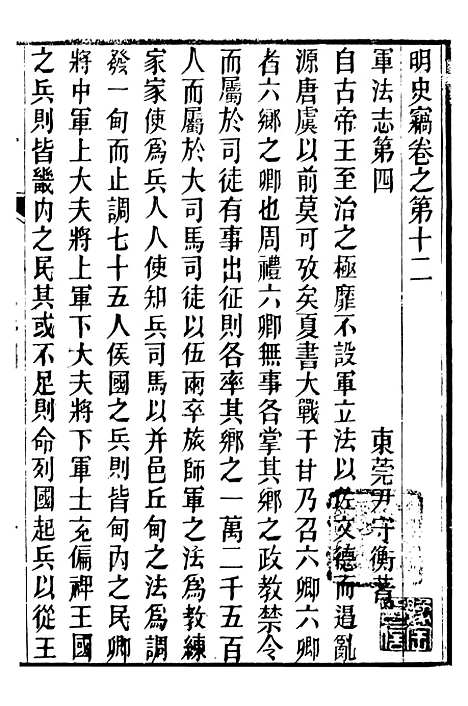 明史竊卷之第十二
軍法志第四
東莞尹守衡著
自古帝王至治之極靡不設軍立法以佐文德而遏亂
源唐虞以前莫可攷矣夏書大戰于甘乃召六卿六卿
者六鄉之卿也周禮六卿無事各掌其鄉之政教禁令
而屬於司徒有事出征則各率其鄉之一萬二千五百
人而屬於大司馬司徒以伍兩卒旅師軍之法爲教練
家家使爲兵人人使知兵司馬以井邑丘甸之法爲調
發一甸而止調七十五人侯國之兵則皆甸內之民卿
將中軍上大夫將上軍下大夫將下軍士充偏裨王國
之兵則皆畿內之民其或不足則命列國起兵以從王